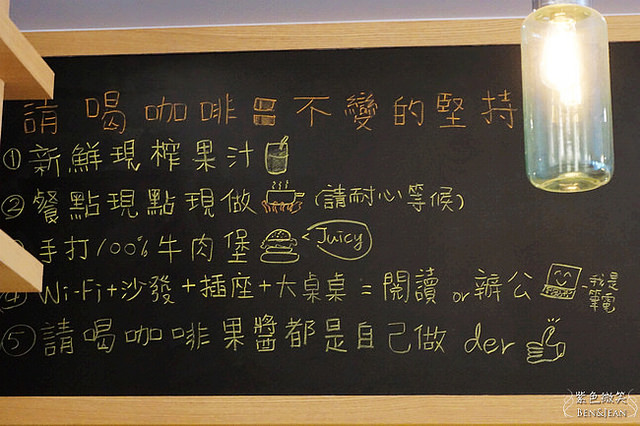 請喝咖啡不變的堅持
① 新鮮現榨果汁
② 餐點現點現做 (請耐心等候)
手打100%牛肉堡 Juicy
Wi-Fi+沙發+插座+大桌桌=閱讀 or 辦公 我是筆電
⑤ 請喝咖啡果醬都是自己做 der
紫色微笑
BEN&JEAN